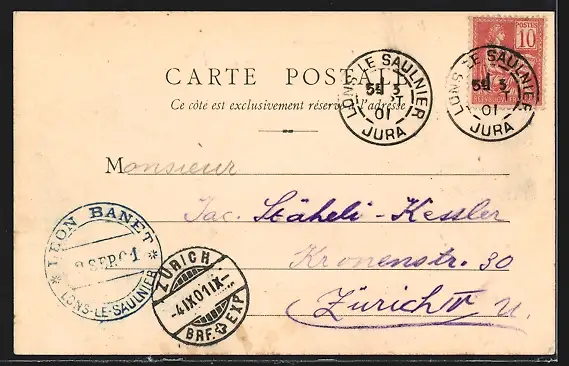 POSTES
10
LONS-LE-SAULNIER
3
SEPT
01
JURA
LONS-LE-SAULNIER
3
01
JURA
CARTE POSTALE
Ce côté est exclusivement réservé à l'adresse
Monsieur
Jac. Stäheli-Kessler
Kronenstr. 30
Zürich IV
LEON BANET
SEP 01
LONS-LE-SAULNIER
ZÜRICH
-4 IX 01 IX-
BRF. EXP